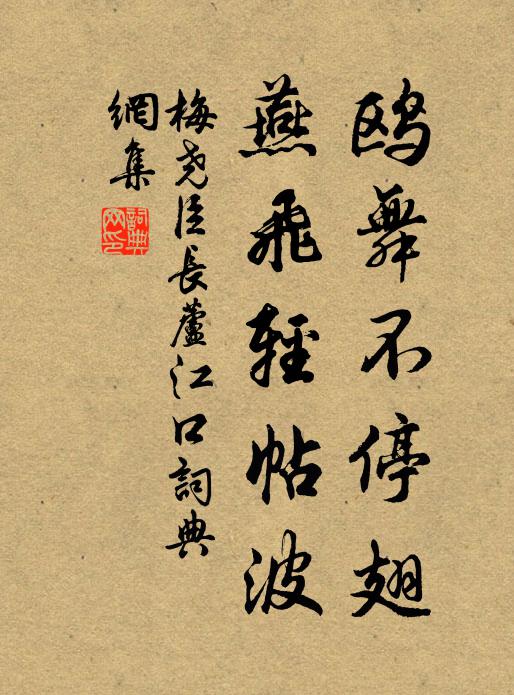 鷗舞不停翅
燕飛輕帖波
梅堯臣長蘆江口詞典
網集
詞典
网印